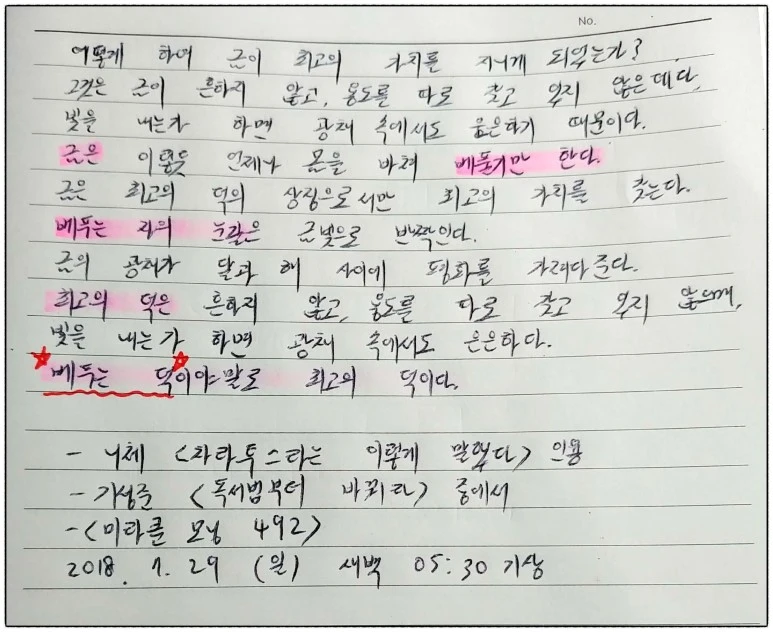 No.
어떻게 하여 금이 최고의 가치를 지니게 되었는가?
그것은 금이 흔하지 않고, 용도를 따로 갖고 있지 않은데다,
빛을 내는가 하면 광채 속에서도 은은하기 때문이다.
금은 이렇듯 언제나 몸을 바쳐 베풀기만 한다.
금은 최고의 덕의 상징으로서만 최고의 가치를 갖는다.
베푸는 자의 눈길은 금빛으로 반짝인다.
금의 광채가 달과 해 사이에 평화를 가져다준다.
최고의 덕은 흔하지 않고, 용도를 따로 갖고 있지 않으며,
빛을 내는가 하면 광채 속에서도 은은하다.
베푸는 덕이야말로 최고의 덕이다.
- 니체 <차라투스트라는 이렇게 말했다> 인용
- 기성준 <독서법부터 바꿔라> 중에서
- <미라클 모닝 492>
2018. 7. 29 (일) 새벽 05:30 기상